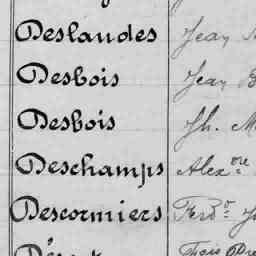 Deslandes Jean
Desbois Jean
Desbois Jh.
Deschamps Alexre
Descormiers Ferdo